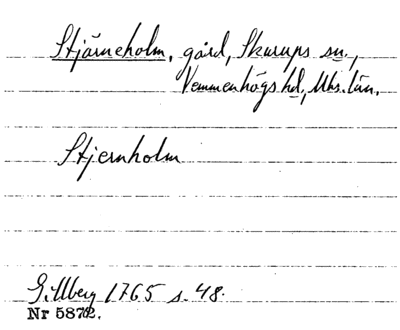 Stjärneholm, gård, Skurups sn.,
Vemmenhögs hd., Mhs. län.
Stjernholm
Gillberg 1765 s. 48.
Nr 5872.